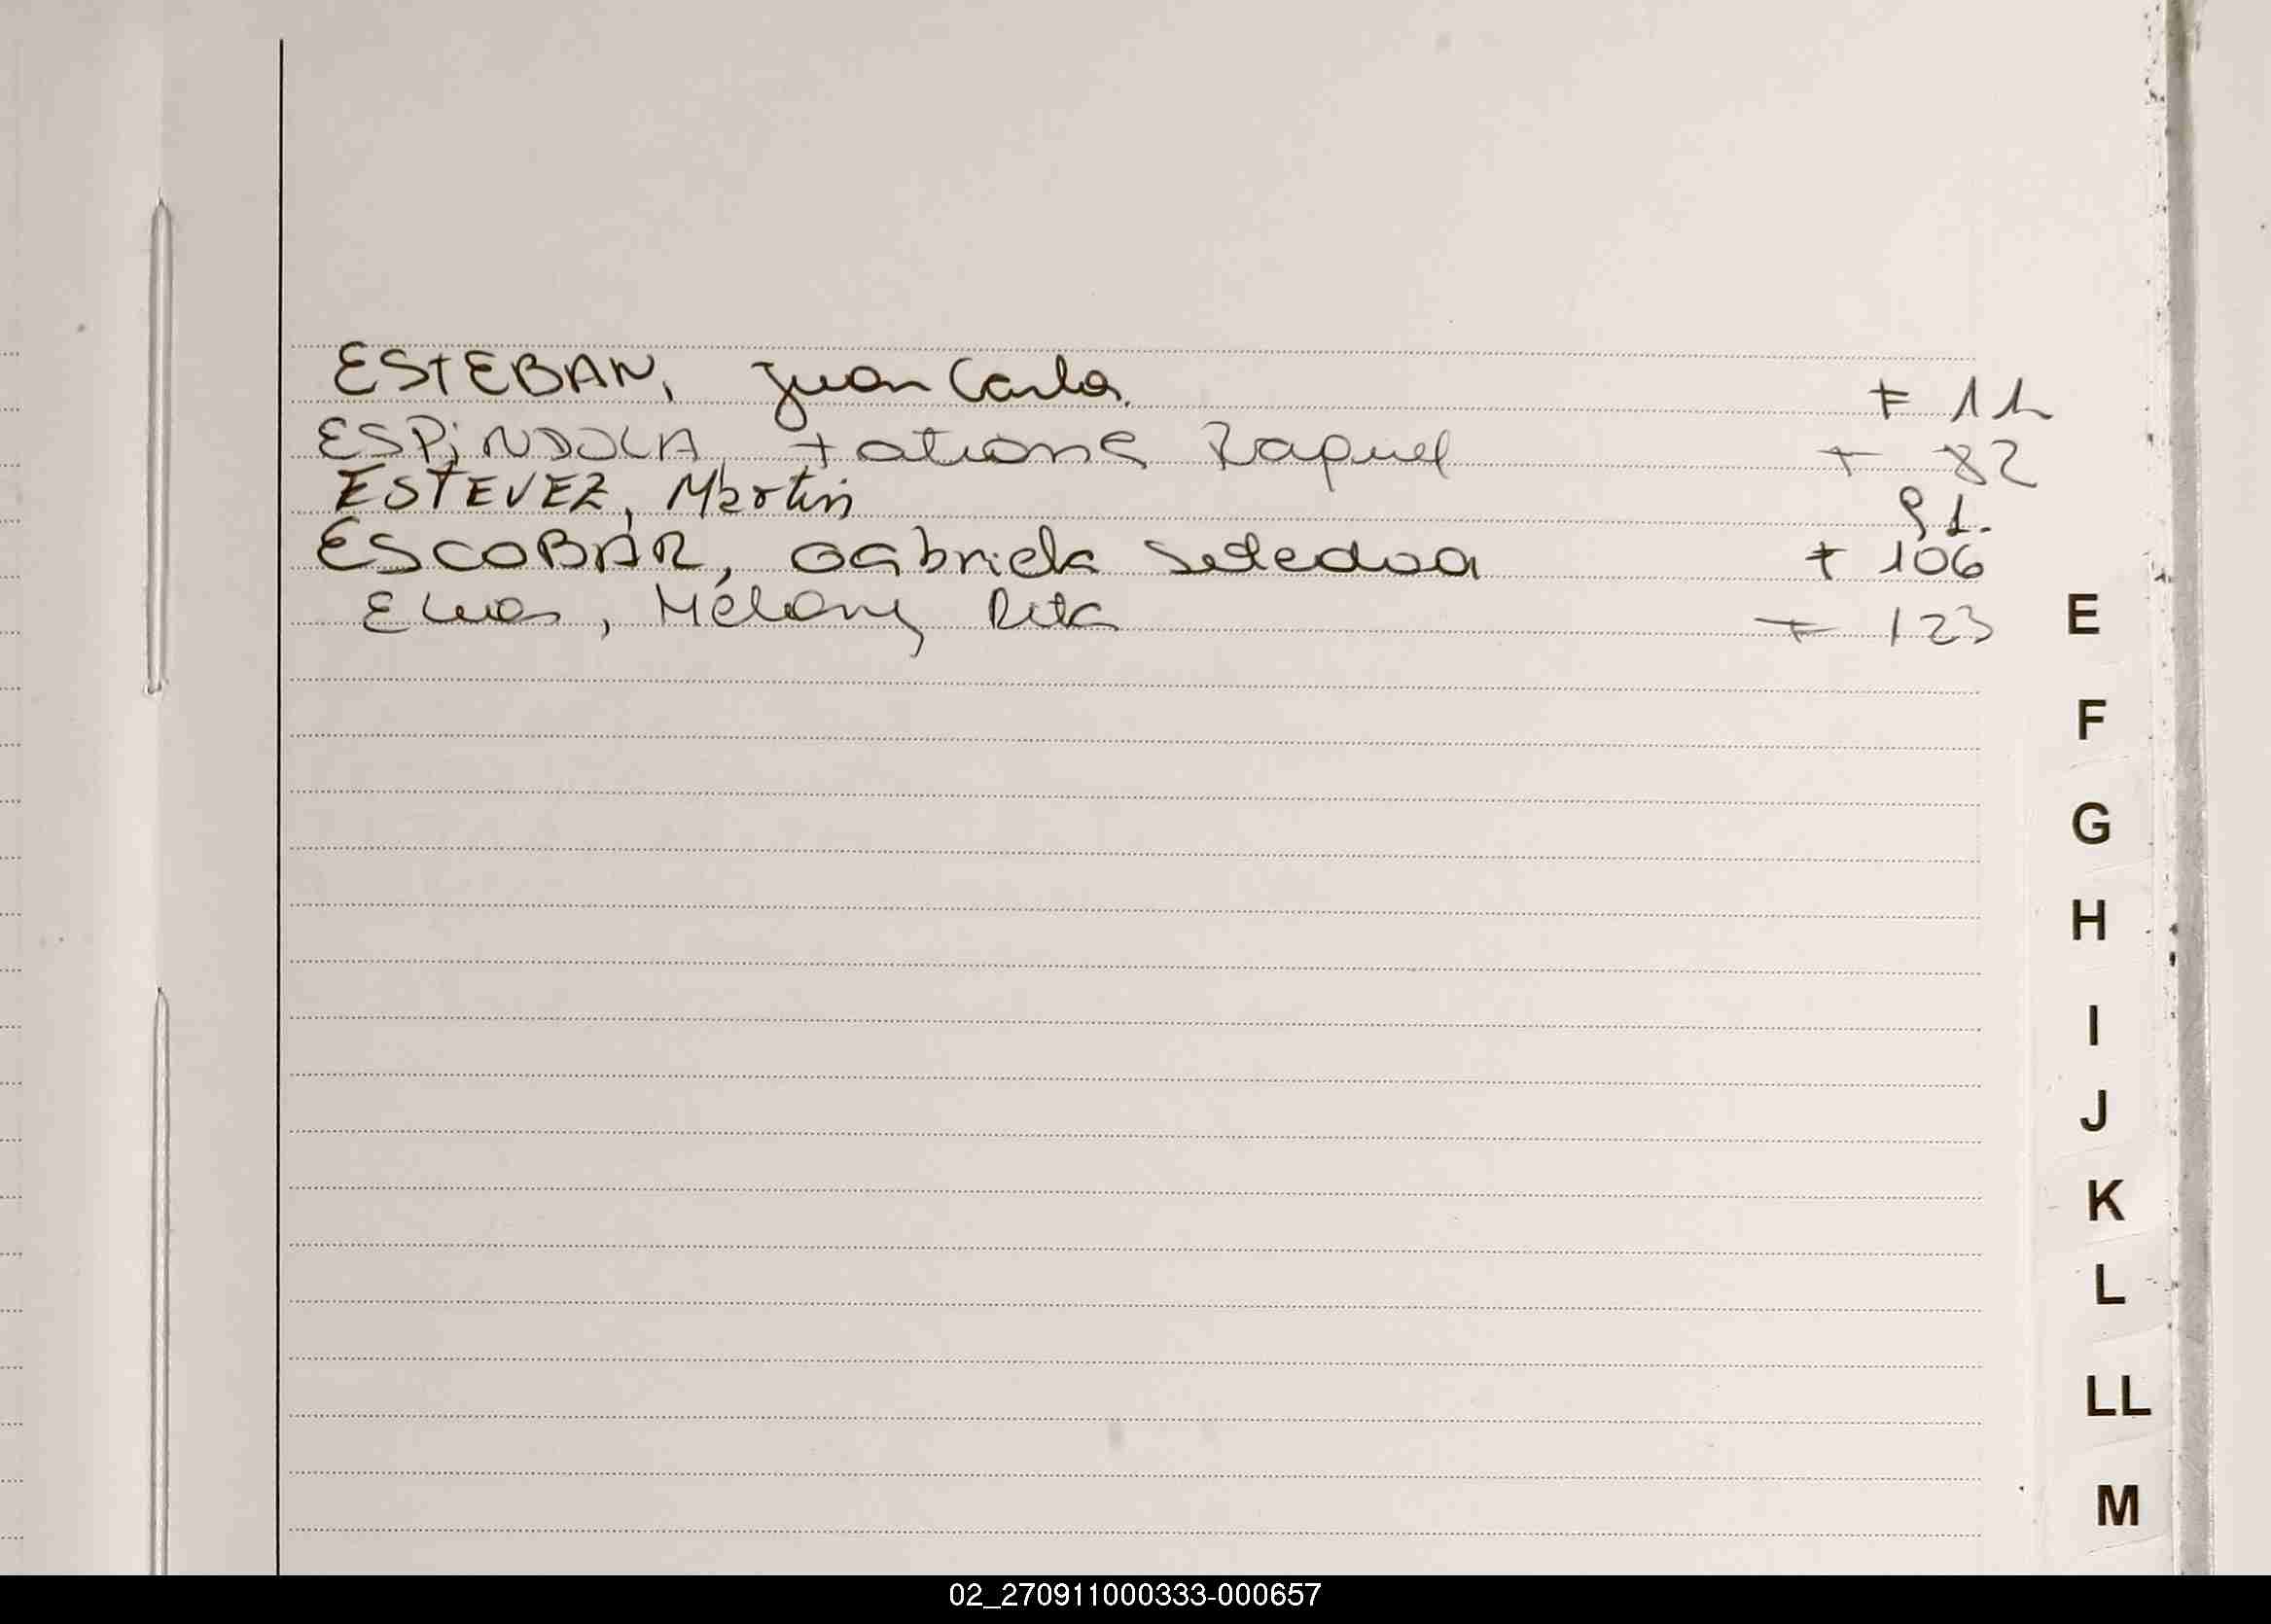 ESTEBAN, Juan Carlos. F 11
ESPiNDOLA, tatiana Raquel F 82
ESTEVEZ, Martin 91.
ESCOBAR, Gabriela Soledad F 106
Elias, Melany Rita F 123
E
F
G
H
I
J
K
L
LL
M
02_270911000333-000657